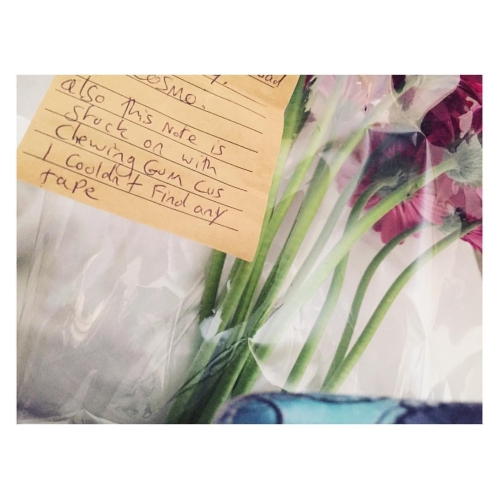 COSMO.
also this Note is
Stuck on with
Chewing Gum Cus
I Couldn't Find any
tape